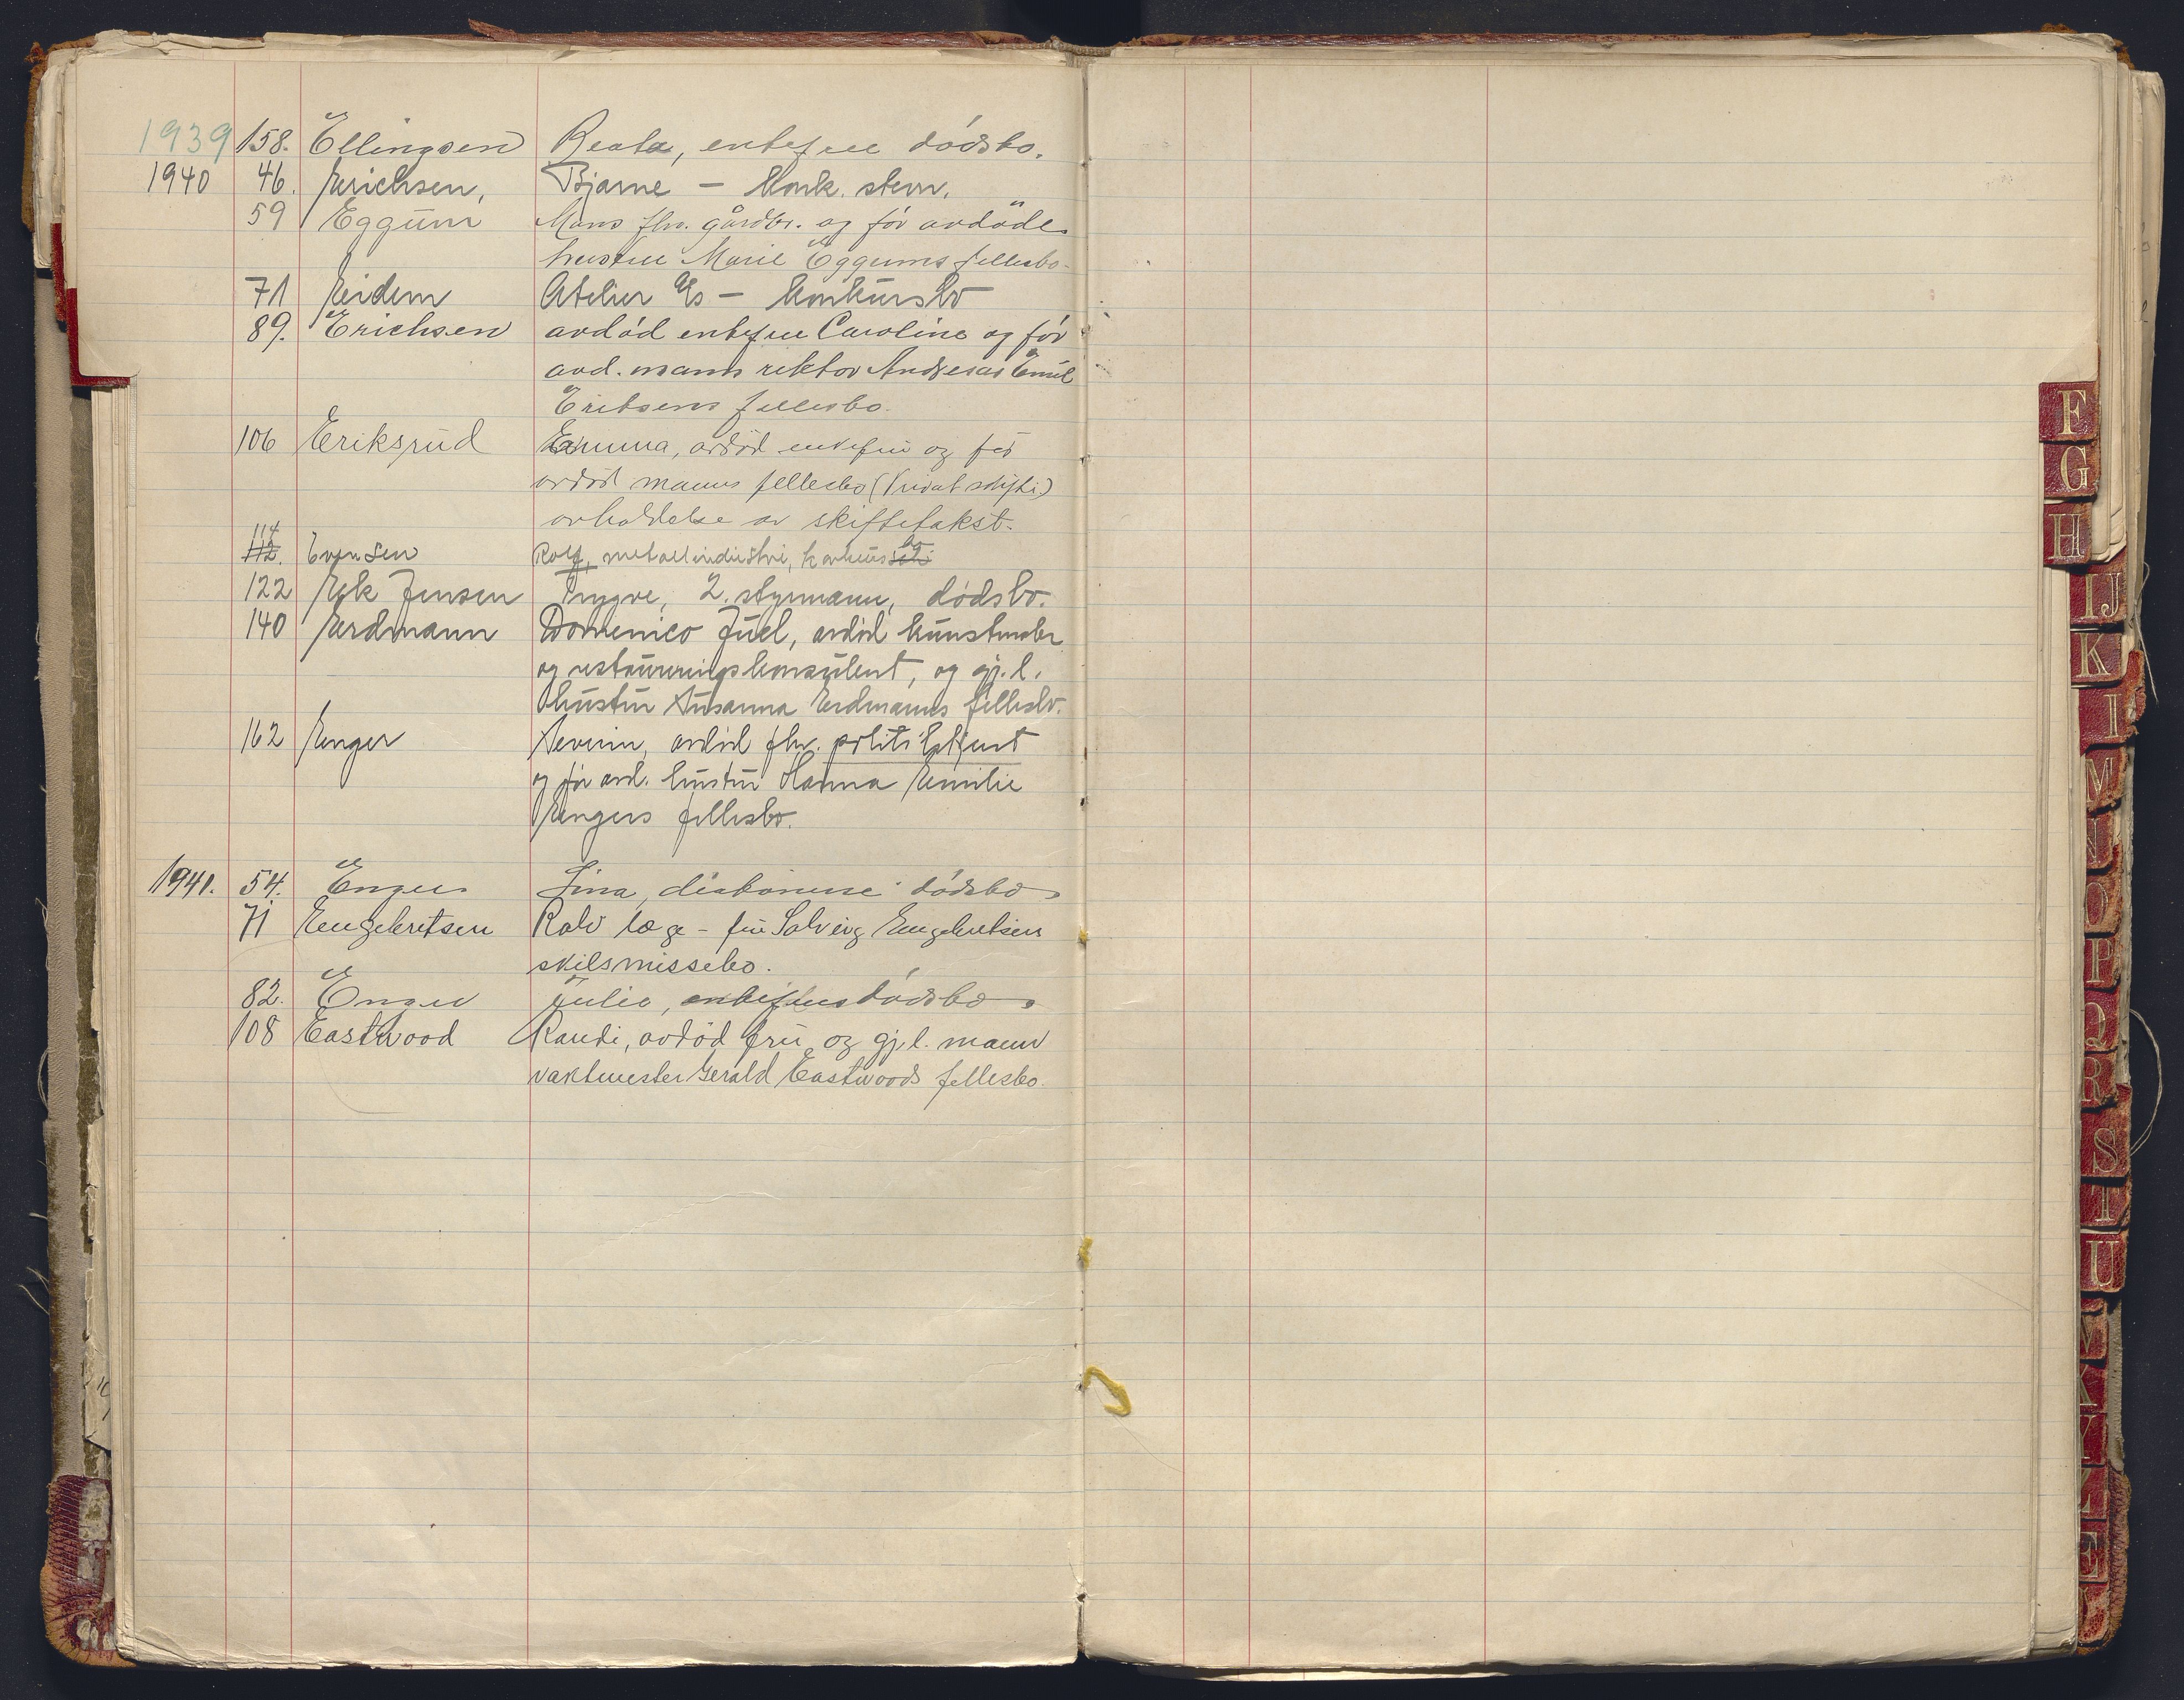 1939 158. Ellingsen Beate, enkefru dødsbo.
1940 46. Erichsen, Bjarne – konk. stevn.
59 Eggum Mons fhv. gårdbr. og før avdøde
hustru Marie Eggums fellesbo
71 Eidem Atelier A/s – konkursbo
89. Erichsen avdød enkefru Caroline og før
avd. manns rektor Andreas Emil
Eriksens fellesbo.
106 Eriksrud Emma, avdød enkefru og før
avdød manns fellesbo (Privat skifte)
avholdelse av skiftetakst.
114
112. Evensen Rolf, metallindustri, konkurs bo
122 Eek Jensen Trygve, 2. styrmann, dødsbo.
140 Erdmann Domenico Juel, avdød kunstmaler
og restaureringskonsulent, og gj. l.
hustru Susanna Erdmanns fellesbo.
162 Enger Severin, avdød fhv. politibetjent
og før avd. hustru Hanna Emilie
Engers fellesbo.
1941. 54. Enger Lina, diakonisse dødsbo
71 Engebretsen Rolv læge – fru Solveig Engebretsen
skilsmissebo.
82. Enger Julie, enkefrus dødsbo
108 Eastwood Randi, avdød fru og gj.l. mann
vaktmester Gerald Eastwoods fellesbo.
F
G
H
IJ
K
L
M
N
O
P
Q
R
S
T
U
V
X
Y
Z
Æ
Ø